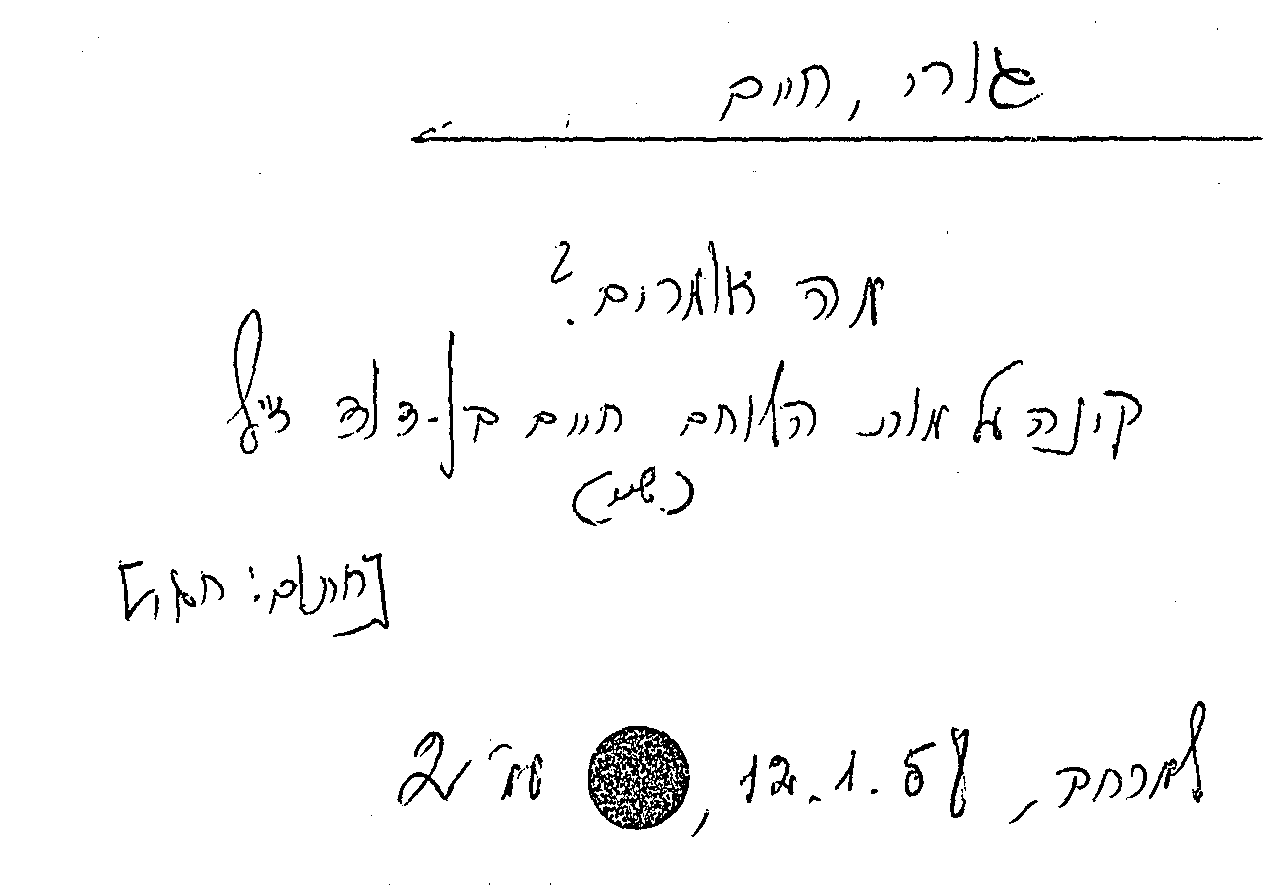 גורי, חיים
מה אומרים?
קינה על מות הלוחם חיים בן-דוד ז"ל
(שיר)
[חתום: חגור]
למרחב, 12.1.58, עמ' 2